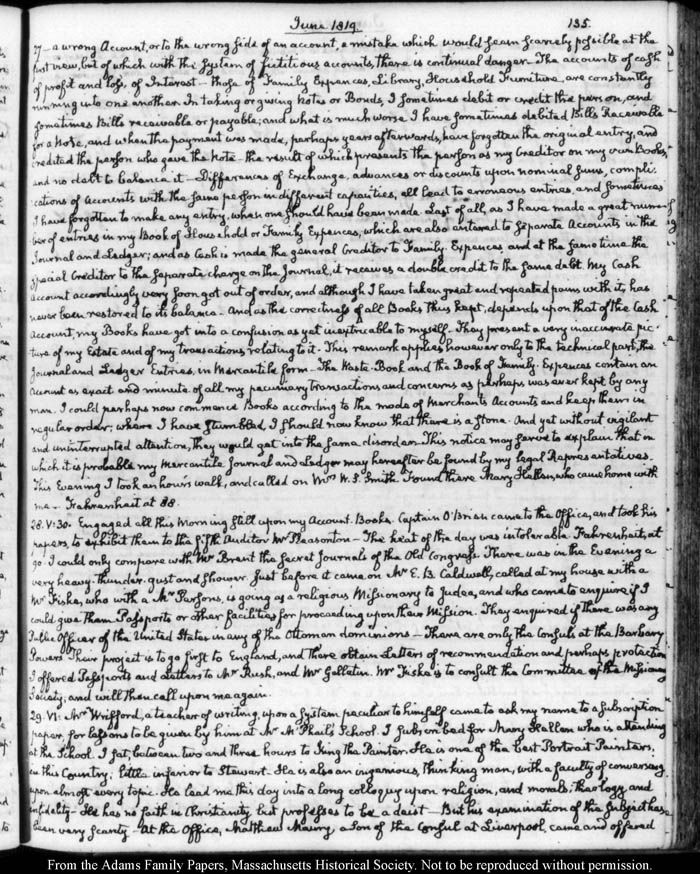 June 1819.
135.
27— a wrong Account, or to the wrong side of an account, a mistake which would seem scarcely possible at the
first view, but of which with this system of fictitious accounts, there is continual danger— The accounts of cash
of profit and loss, of Interest— those of Family Expences, Library, Household Furniture, are constantly
running into one another. In taking or giving Notes or Bonds, I sometimes debit or credit the person, and
sometimes Bills receivable or payable; and what is much worse I have sometimes debited Bills Receivable
for a Note, and when the payment was made, perhaps years afterwards, have forgotten the original entry, and
credited the person who gave the Note— the result of which presents the person as my Creditor on my own Books,
and no debt to balance it— Differences of Exchange, advances or discounts upon nominal sums, compli-
cations of accounts with the same person in different capacities, all lead to erroneous entries, and sometimes
I have forgotten to make any entry, when one should have been made. Last of all, as I have made a great num-
ber of entries in my Book of Household or Family Expences, which are also entered to separate Accounts in the
Journal and Ledger; and as Cash is made the general Creditor to Family Expences and at the same time the
special Creditor to the separate charge on the Journal, it receives a double credit to the same debt. My Cash
Account accordingly very soon got out of order, and although I have taken great and repeated pains with it, has
never been restored to its balance— And as the correctness of all Books thus kept, depends upon that of the Cash
Account, my Books have got into a confusion as yet inextricable to myself. They present a very inaccurate pic-
ture of my Estate and of my transactions relating to it— This remark applies however only to the technical part, the
Journal and Ledger Entries, in Mercantile form— The Waste-Book and the Book of Family Expences contain an
Account as exact and minute of all my pecuniary transactions and concerns as perhaps was ever kept by any
man. I could perhaps now commence Books according to the mode of Merchants Accounts and keep them in
regular order; where I have stumbled, I should now know that there is a stone— And yet without vigilant
and uninterrupted attention, they would get into the same disorder. This notice may serve to explain that in
which it is probable my Mercantile Journal and Ledger may hereafter be found by my legal Representatives.
This Evening I took an hour's walk, and called on Mrs W. S. Smith. Found there Mary Hellen, who came home with
me— Fahrenheit at 88.
28. V:30. Engaged all this Morning still upon my Account-Books. Captain O'Brian came to the Office, and took his
papers, to exhibit them to the fifth Auditor Mr Pleasonton— The heat of the day was intolerable. Fahrenheit, at
90. I could only compare with Mr Brent the Secret Journals of the Old Congress. There was in the Evening a
very heavy thunder-gust and shower. Just before it came on Mr E. B. Caldwell, called at my house with a
Mr Fiske, who with a Mr Parsons, is going as a religious Missionary to Judea, and who came to enquire if I
could give them Passports or other facilities for proceeding upon their Mission. They enquired if there was any
Public Officer of the United States in any of the Ottoman dominions— There are only the Consuls at the Barbary
Powers. Their project is to go first to England, and there obtain Letters of recommendation and perhaps protection
I offered Passports and Letters to Mr Rush, and Mr Gallatin. Mr Fiske is to consult the Committee of the Missionary
Society; and will then call upon me again.
29. VI: Mr Wrifford, a teacher of writing, upon a System peculiar to himself came to ask my name to a subscription
paper, for lessons to be given by him at Mr McPhail's School. I subscribed for Mary Hellen who is attending
at the School. I sat, between two and three hours to King the Painter. He is one of the best Portrait Painters,
in this Country; little inferior to Stewart. He is also an ingenious, thinking man, with a faculty of conversing
upon almost every topic. He lead me this day into a long colloquy upon religion, and morals; theology, and
infidelity— He has no faith in Christianity but professes to be a deist— But his examination of the subject has
been very scanty— At the Office, Matthew Maury a Son of the Consul at Liverpool, came and offered
From the Adams Family Papers, Massachusetts Historical Society. Not to be reproduced without permission.